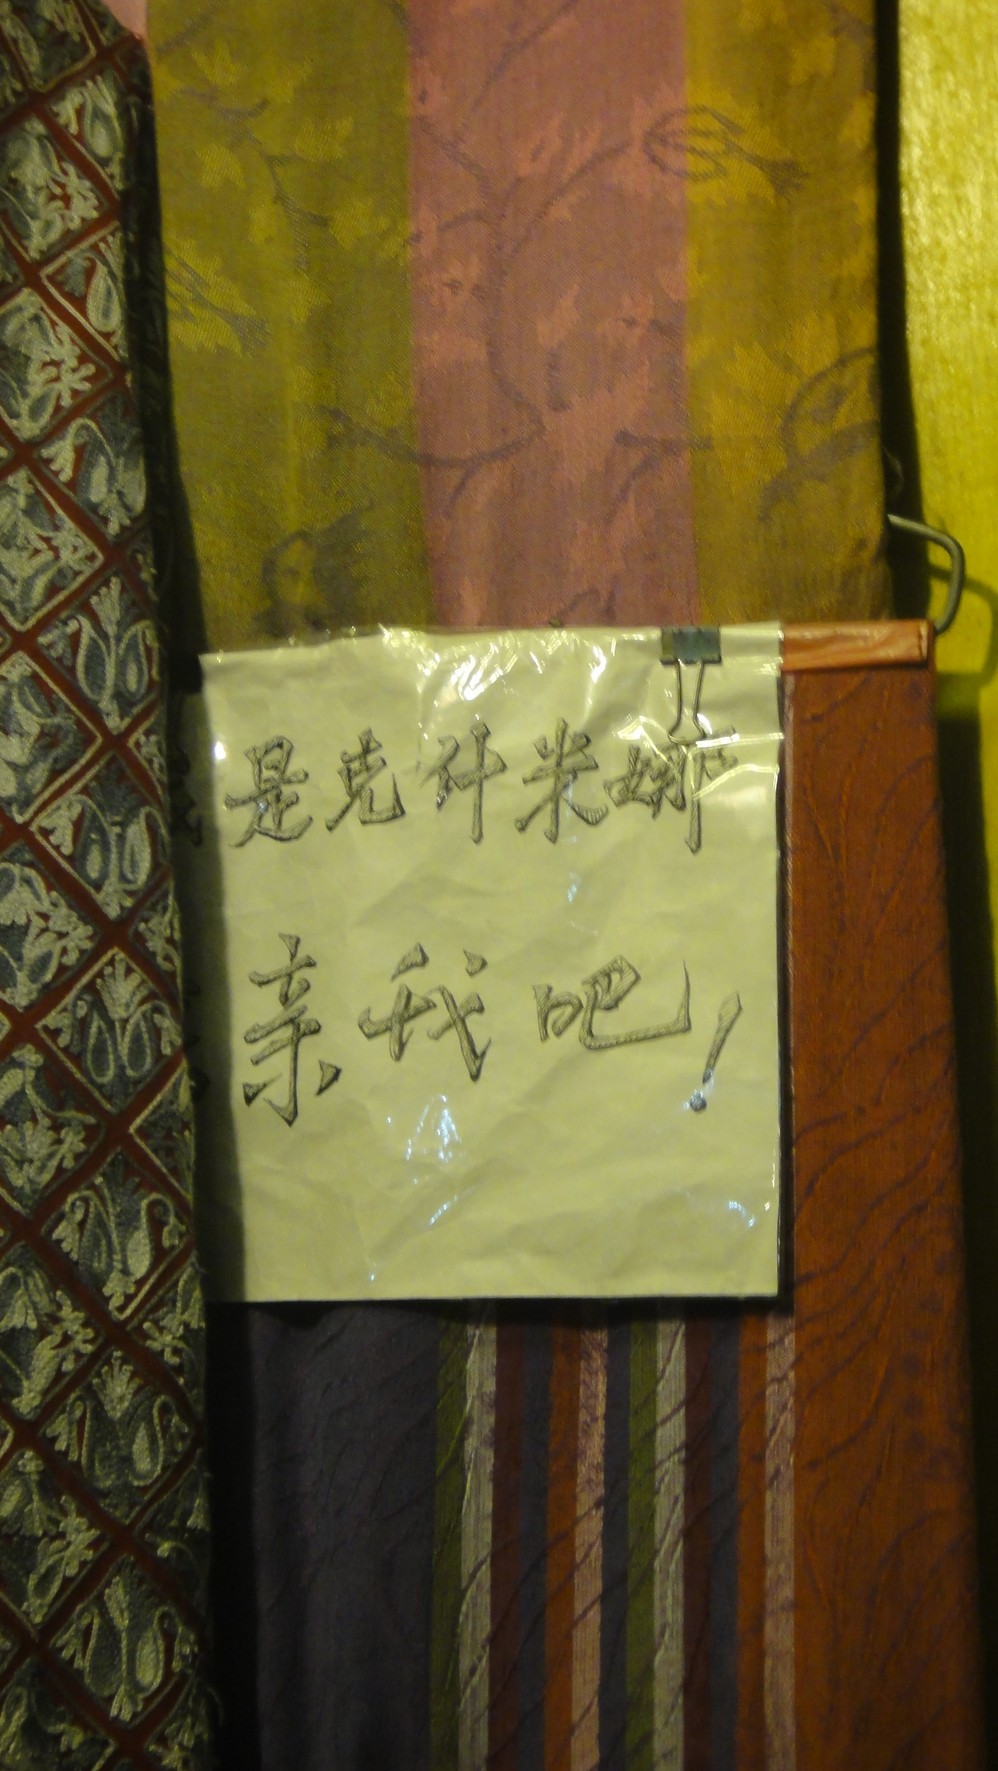 是克什米娜
亲我吧！